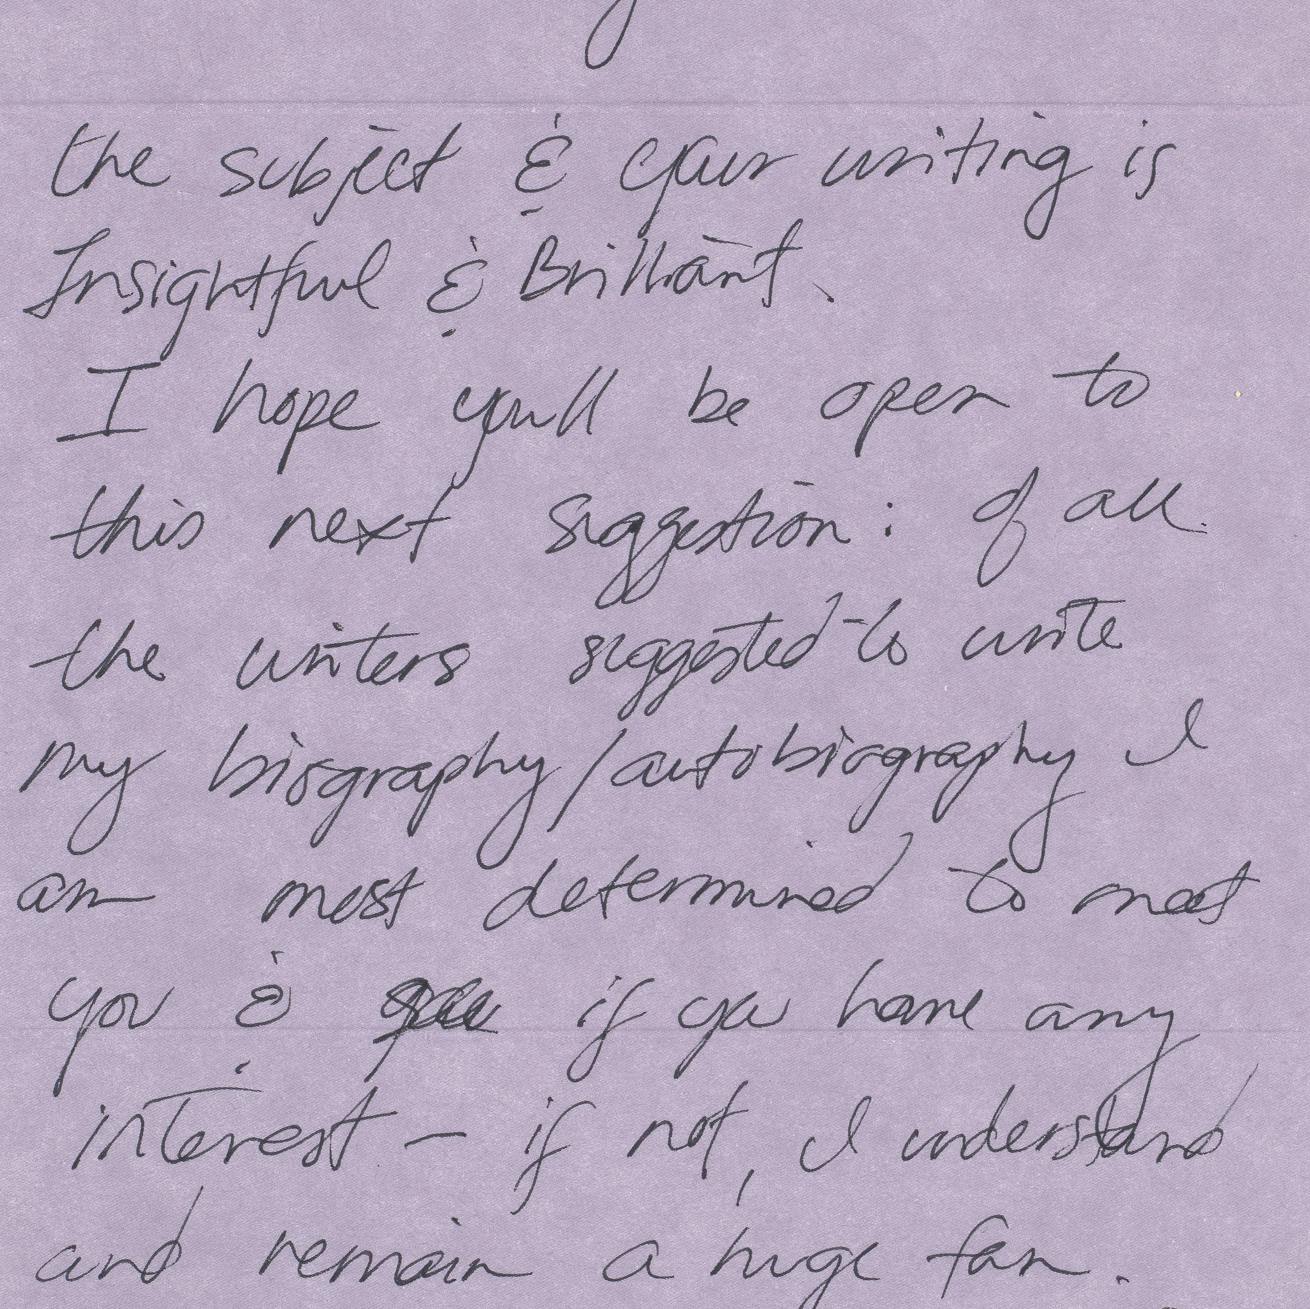 the subject & your writing is
Insightful & Brilliant.
I hope you'll be open to
this next suggestion: of all
the writers suggested to write
my biography/autobiography I
am most determined to meet
you & if you have any
interest – if not, I understand
and remain a huge fan.